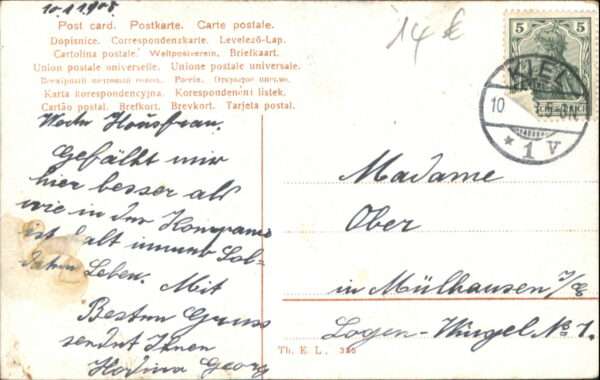 10.1.1908
14 €
Post card. Postkarte. Carte postale.
Dopisnice. Correspondenzkarte. Levelező-Lap.
Cartolina postale. Weltpostverein. Briefkaart.
Union postale universelle. Unione postale universale.
Всемірный почтовый союзъ. Россія. Открытое письмо.
Karta korespondencyjna. Korespondenční lístek.
Cartão postal. Brefkort. Brevkort. Tarjeta postal.
5 5
KIEL
10
* 1 V
Hausfrau.
Gefällt mir
hier besser als
wie in der
ist halt immer
Leben. Mit
Besten Gruss
sendet Ihnen
Georg
Madame
Ober
in Mülhausen i/E
Logen-Wingel No 1.
Th. E. L. 385